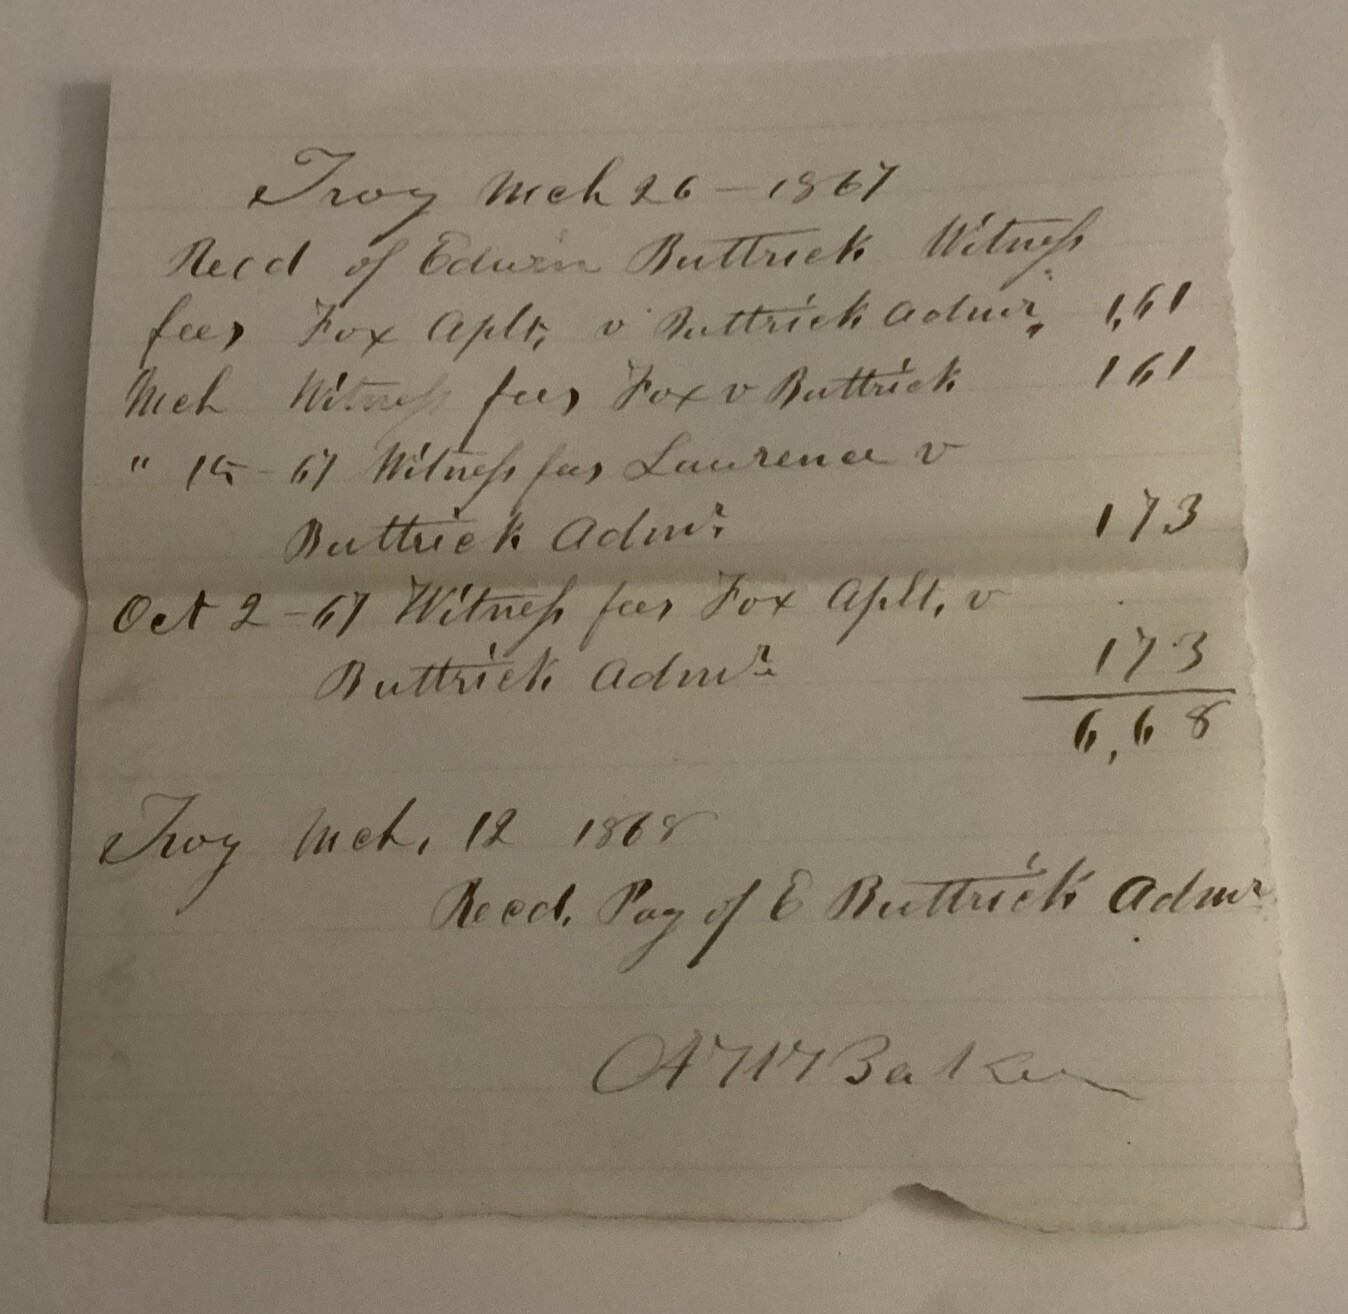 Troy Mch 26 - 1867
Recd of Edwin Buttrick Witness
fees Fox Aplt, v Buttrick Admr, 1,61
Mch Witness fees Fox v Buttrick 1 61
" 15 - 67 Witness fees Lawrence v
Buttrick Admr 1 73
Oct 2 - 67 Witness fees Fox Aplt, v
Buttrick Admr 1 73
6,68
Troy Mch, 12 1868
Recd, Pay of E Buttrick Admr
A W Baker